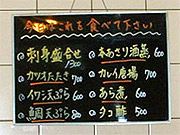 今日はこれを食べて下さい
刺身盛合せ 1300
カツオたたき 700
イワシ天ぷら 600
鯛天ぷら 800
本あさり酒蒸 600
カレイ唐揚 700
あら煮 600
タコ酢 500